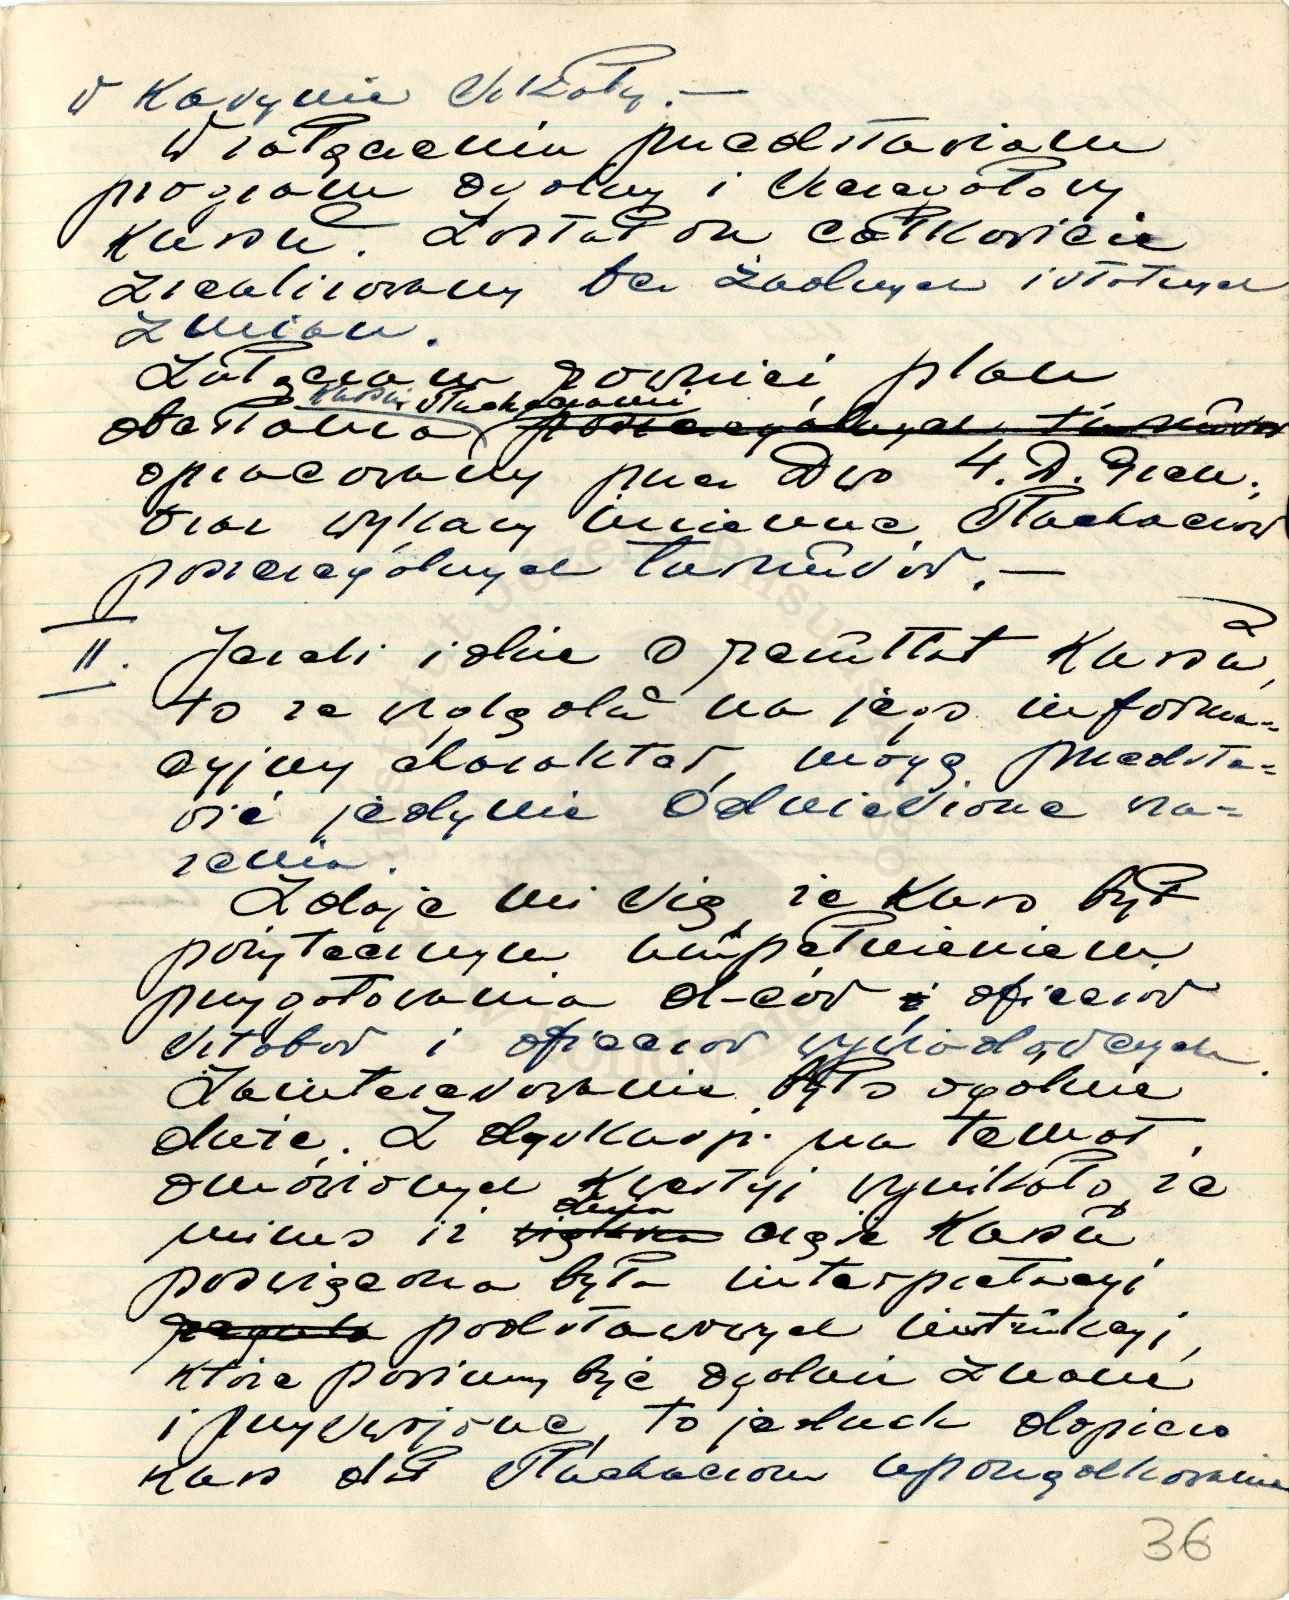 w Kasynie Szkoły. —
W załączeniu przedstawiam
program ogólny i szczegółowy
kursu. Został on całkowicie
zrealizowany bez żadnych istotnych
zmian.
Załączam również plan
kursu słuchaczami
obesłania poszczególnych turnusów
opracowany przez Dwo 4. D. Panc.,
oraz wykazy imienne słuchaczów
poszczególnych turnusów. —
II. Jeżeli idzie o rezultat kursu,
to ze względu na jego informa-
cyjny charakter, mogę przedsta-
wić jedynie odniesione wra-
żenia.
Zdaje mi się, że kurs był
pożytecznym uzupełnieniem
przygotowania d-ców i oficerów
sztabów i oficerów wywiadowczych.
Zainteresowanie było ogólnie
duże. Z dyskusji na temat
omówionych kwestyj wynikało, że
duża
mimo iż większa część kursu
poświęcona była interpretacyi
podstawowych instrukcyj,
które powinny być ogólnie znane
i przyswojone, to jednak dopiero
kurs dał słuchaczom uporządkowanie
36